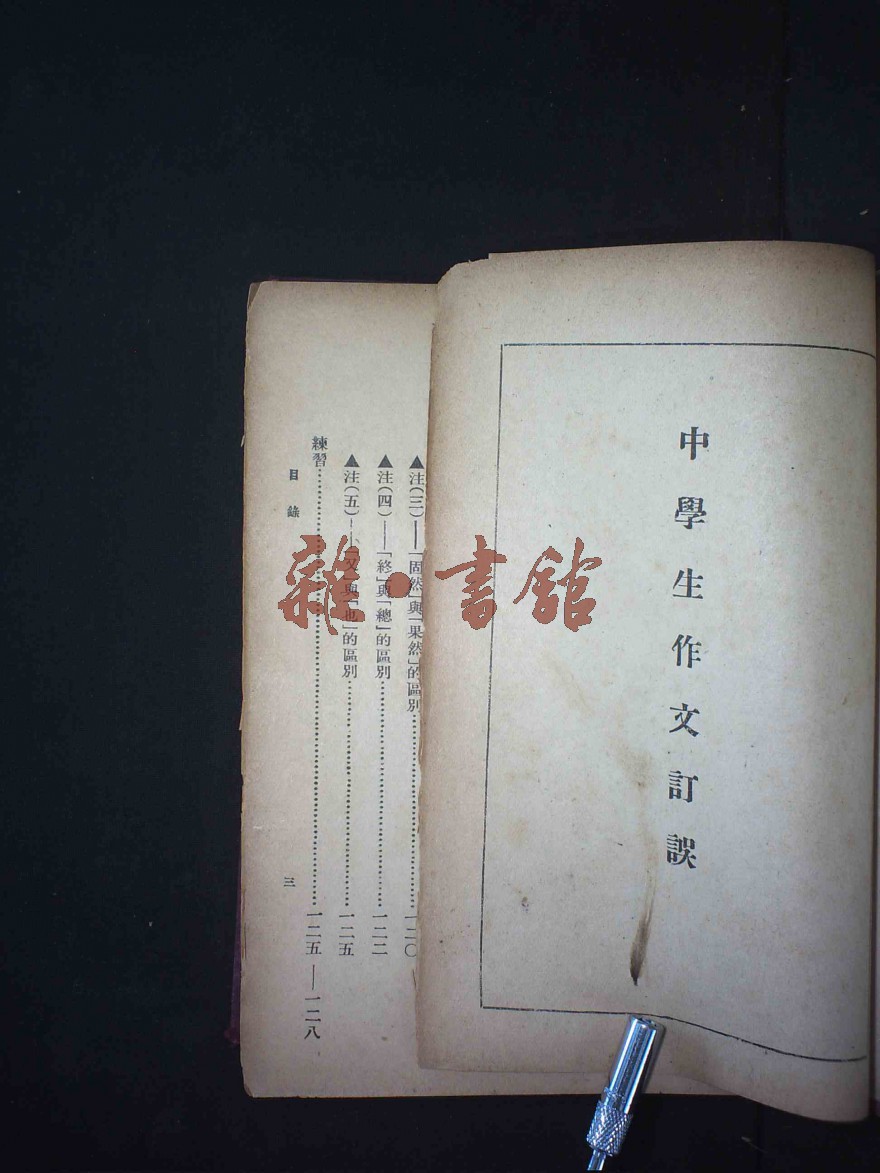 中學生作文訂誤
▲注(三)——「固然」與「果然」的區別……一二〇
▲注(四)——「終」與「總」的區別……一二二
▲注(五)——「又」與「也」的區別……一二五
練習……一二五——一二八
目錄
三
雜·書館